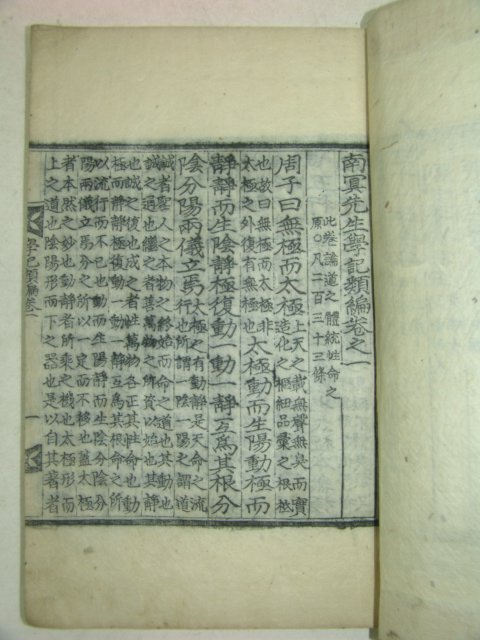 南冥先生學記類編卷之一
此卷論道之體統性命之
原〇凡二百三十三條
周子曰無極而太極
上天之載無聲無臭而實
造化之樞紐品彙之根柢
也故曰無極而太極非
太極之外復有無極也
太極動而生陽動極而
靜靜而生陰靜極復動一動一靜互爲其根分
陰分陽兩儀立焉
太極之有動靜是天命之流
行也所謂一陰一陽之謂道
誠者聖人之本物之終始而命之道也其動也
誠之通也繼之者善萬物之所資以始也其靜
也誠之復也成之者性萬物各正其性命也動
極而靜靜極復動一動一靜互爲其根命之所
以流行而不已也動而生陽靜而生陰分陰分
陽兩儀立焉分之所以一定而不移也蓋太極
者本然之妙也動靜者所乘之機也太極形而
上之道也陰陽形而下之器也是以自其著者
學記類編卷一
一